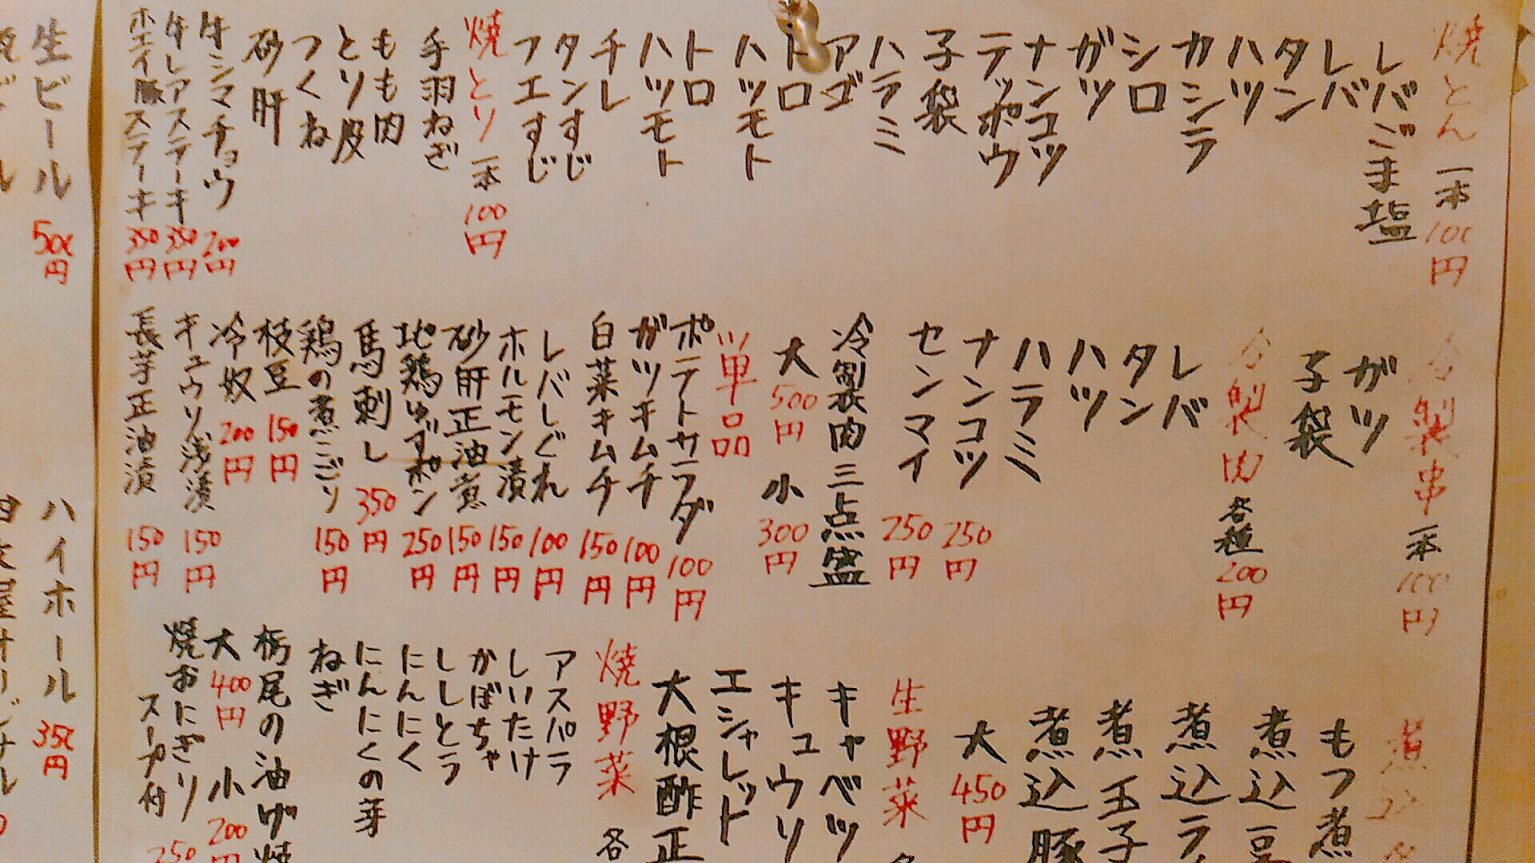 焼とん 一本 100円
レバごま塩
レバ
タン
ハツ
カシラ
シロ
ガツ
ナンコツ
テッポウ
子袋
ハラミ
アゴ
トロ
ハツモト
トロ
ハツモト
チレ
タンすじ
フエすじ
焼とり 一本 100円
手羽ねぎ
もも肉
とり皮
つくね
砂肝
牛シマチョウ 200円
牛レアステーキ 350円
ホエイ豚ステーキ 350円
冷製串 一本 100円
ガツ
子袋
冷製肉 各種 200円
レバ
タン
ハツ
ハラミ
ナンコツ 250円
センマイ 250円
冷製肉三点盛
大 500円 小 300円
単品
ポテトサラダ 100円
ガツキムチ 100円
白菜キムチ 150円
レバしぐれ 100円
ホルモン漬 150円
砂肝正油煮 150円
地鶏ゆずポン 250円
馬刺し 350円
鶏の煮こごり 150円
枝豆 150円
冷奴 200円
キュウリ浅漬 150円
長芋正油漬 150円
煮込
もつ煮
煮込豆
煮込ラ
煮玉子
煮込豚
大 450円
生野菜
キャベツ
キュウリ
エシャレット
大根酢正
焼野菜 各
アスパラ
しいたけ
かぼちゃ
ししとう
にんにく
にんにくの芽
ねぎ
栃尾の油げ焼
大 400円 小 200円
焼おにぎり
スープ付 250
生ビール 500円
ハイボール 350円